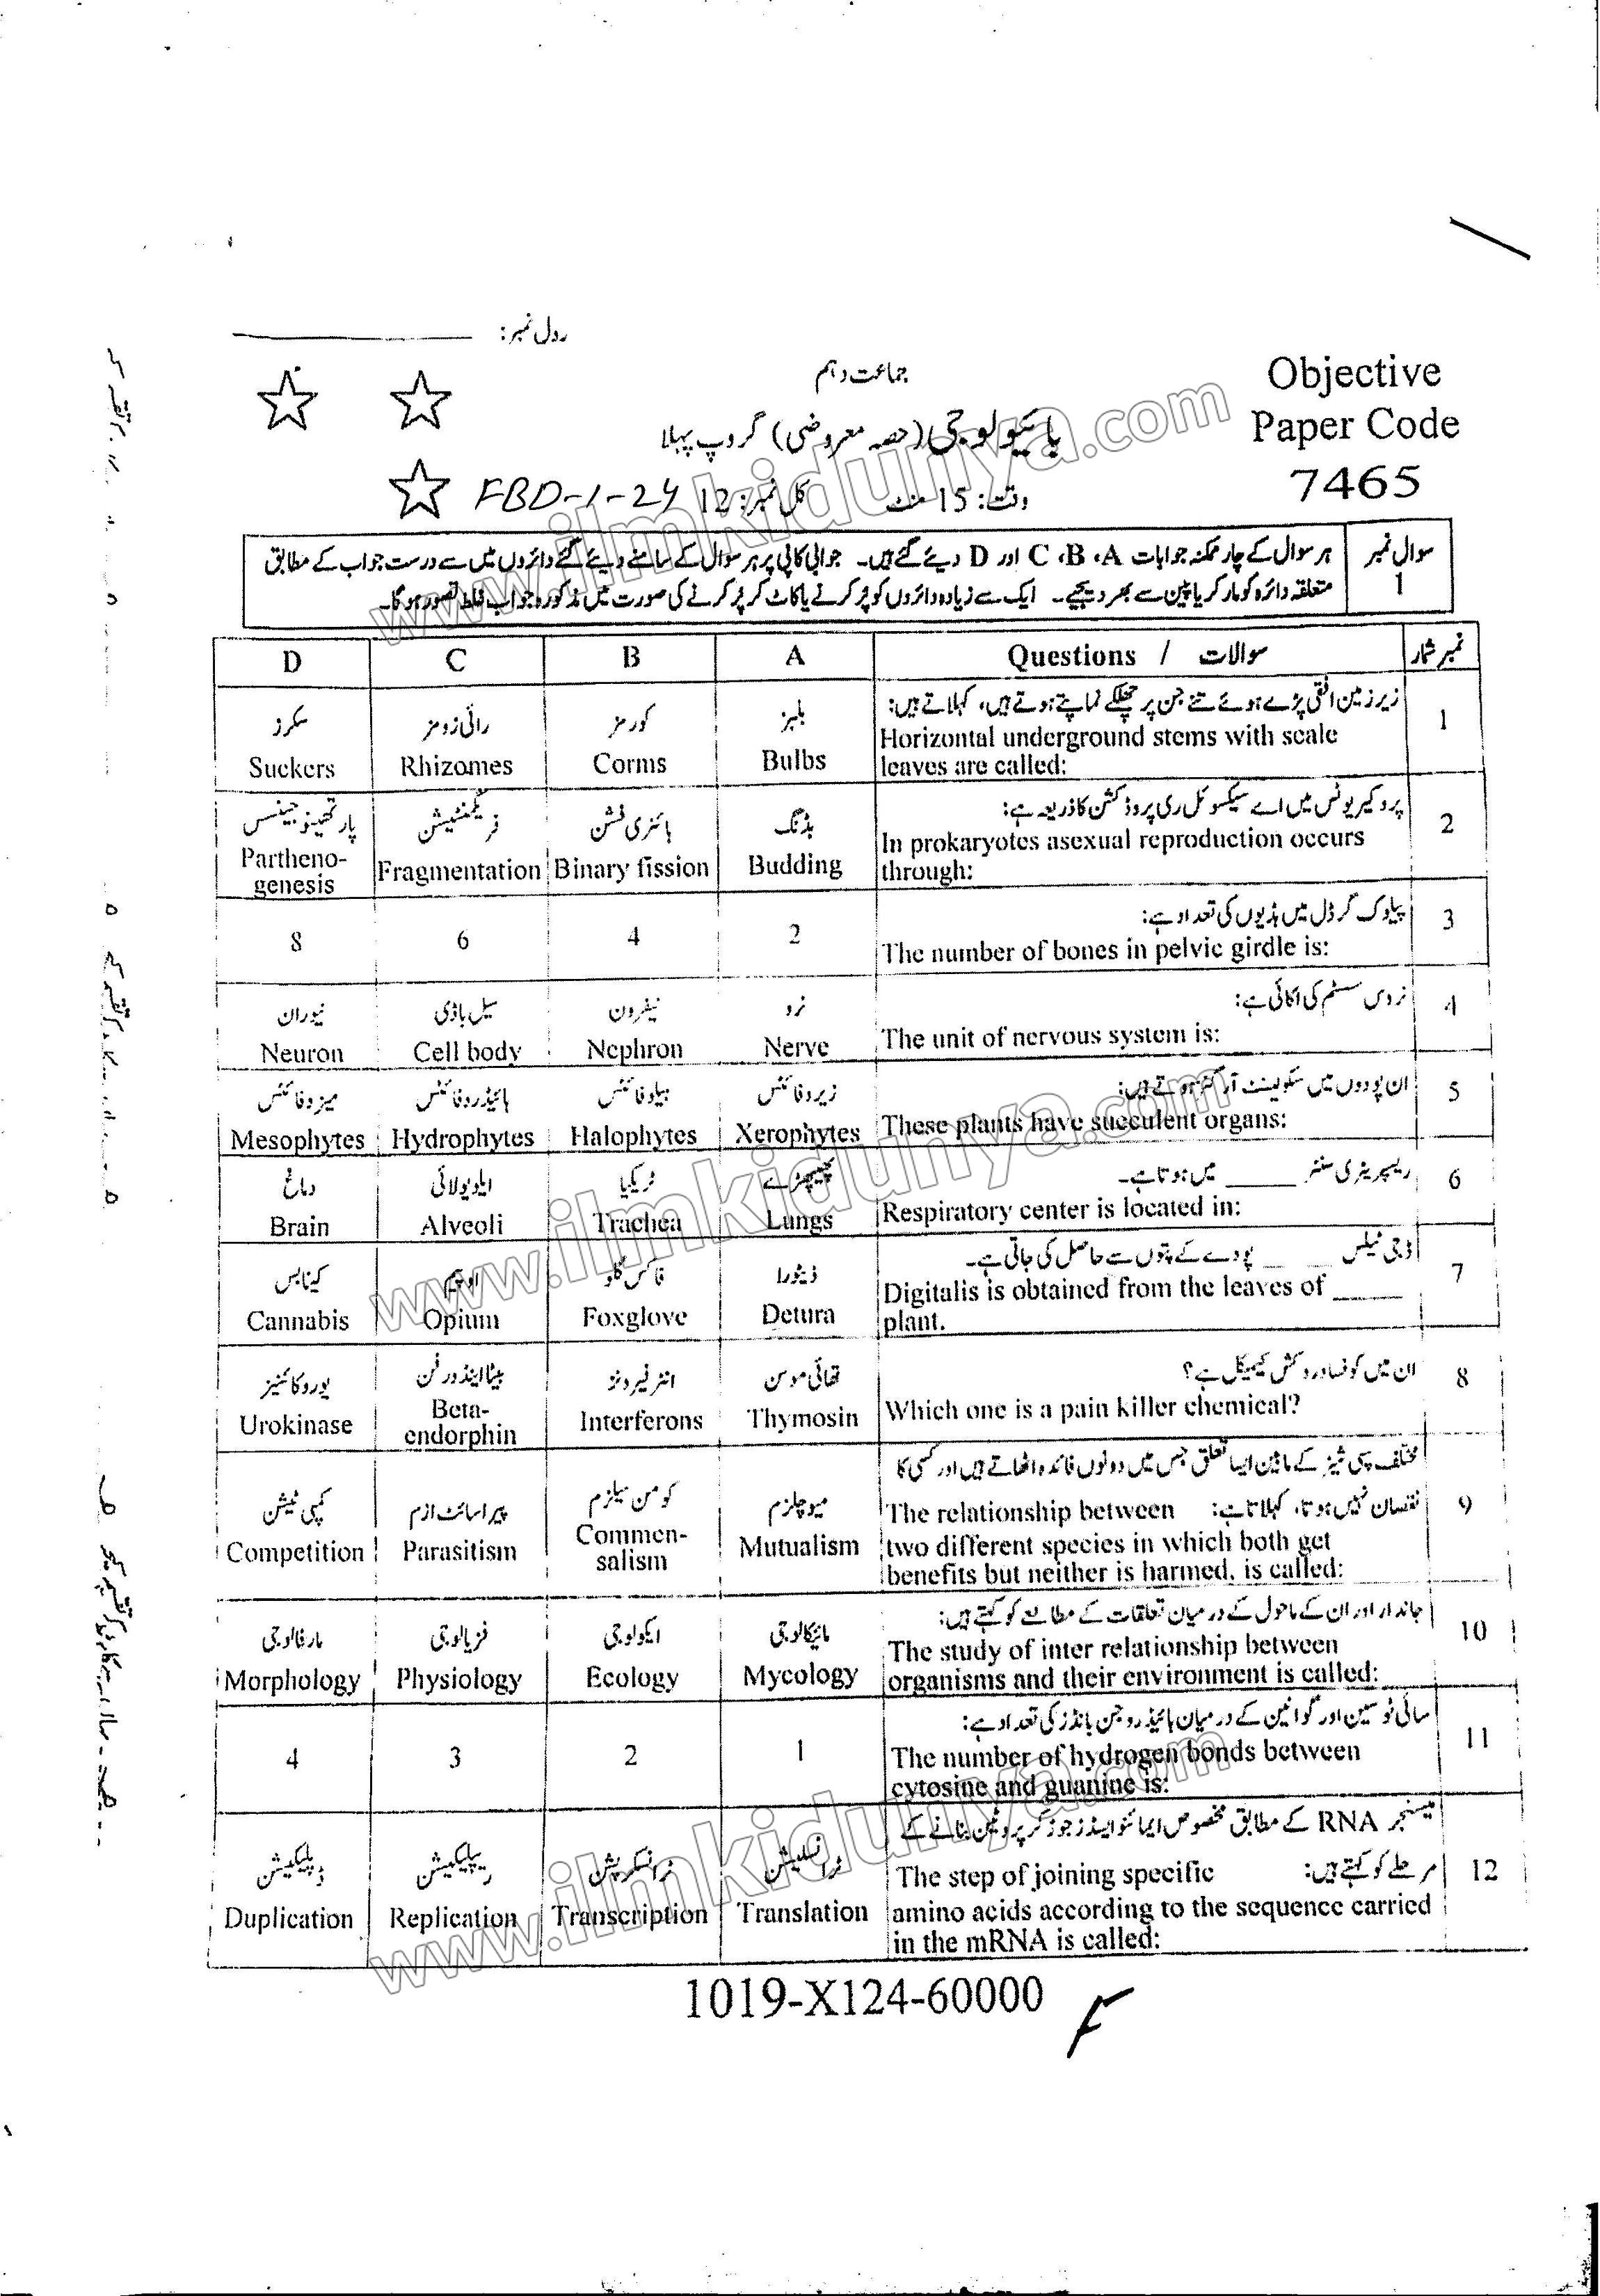 رول نمبر:
جماعت دہم
بائیولوجی (حصہ معروضی) گروپ پہلا
وقت: 15 منٹ کل نمبر: 12
FBD-1-24
Objective
Paper Code
7465
سوال نمبر 1
ہر سوال کے چار ممکنہ جوابات A، B، C اور D دیئے گئے ہیں۔ جوابی کاپی پر ہر سوال کے سامنے دیئے گئے دائروں میں سے درست جواب کے مطابق
متعلقہ دائرہ کو مارکر یا پین سے بھر دیجیے۔ ایک سے زیادہ دائروں کو پُر کرنے یا کاٹ کر پُر کرنے کی صورت میں مذکورہ جواب غلط تصور ہوگا۔
نمبر شمار سوالات / Questions A B C D
1 زیر زمین افقی پڑے ہوئے تنے جن پر چھلکے نما پتے ہوتے ہیں، کہلاتے ہیں:
Horizontal underground stems with scale
leaves are called:
بلبز کورمز رائی زومز سکرز
Bulbs Corms Rhizomes Suckers
2 پروکیریوٹس میں اے سیکسوئل ری پروڈکشن کا ذریعہ ہے:
In prokaryotes asexual reproduction occurs
through:
بڈنگ بائنری فشن فریگمنٹیشن پارتھینوجینسس
Budding Binary fission Fragmentation Partheno-
genesis
3 پیلوک گرڈل میں ہڈیوں کی تعداد ہے:
The number of bones in pelvic girdle is:
2 4 6 8
4 نروس سسٹم کی اکائی ہے:
The unit of nervous system is:
نرو نیفرون سیل باڈی نیوران
Nerve Nephron Cell body Neuron
5 ان پودوں میں سکولینٹ آرگنز ہوتے ہیں:
These plants have succulent organs:
زیروفائٹس ہیلوفائٹس ہائیڈروفائٹس میزوفائٹس
Xerophytes Halophytes Hydrophytes Mesophytes
6 ریسپریٹری سنٹر _____ میں ہوتا ہے۔
Respiratory center is located in:
پھیپھڑے ٹریکیا ایلویولائی دماغ
Lungs Trachea Alveoli Brain
7 ڈجی ٹیلس _____ پودے کے پتوں سے حاصل کی جاتی ہے۔
Digitalis is obtained from the leaves of _____
plant.
ڈیٹورا فاکس گلو اوپیم کینابس
Detura Foxglove Opium Cannabis
8 ان میں کونسا درد کش کیمیکل ہے؟
Which one is a pain killer chemical?
تھائی موسن انٹرفیرونز بیٹا اینڈورفن یوروکائنیز
Thymosin Interferons Beta-
endorphin Urokinase
9 مختلف سپی شیز کے مابین ایسا تعلق جس میں دونوں فائدہ اٹھاتے ہیں اور کسی کا
نقصان نہیں ہوتا، کہلاتا ہے: The relationship between
two different species in which both get
benefits but neither is harmed, is called:
میوچلزم کومن سیلزم پیراسائٹ ازم کمپی ٹیشن
Mutualism Commen-
salism Parasitism Competition
10 جاندار اور ان کے ماحول کے درمیان تعلقات کے مطالعے کو کہتے ہیں:
The study of inter relationship between
organisms and their environment is called:
مائیکالوجی ایکولوجی فزیالوجی مارفالوجی
Mycology Ecology Physiology Morphology
11 سائی ٹوسین اور گوانین کے درمیان ہائیڈروجن بانڈز کی تعداد ہے:
The number of hydrogen bonds between
cytosine and guanine is:
1 2 3 4
12 میسنجر RNA کے مطابق مخصوص امائنو ایسڈز جوڑ کر پروٹین بنانے کے
مرحلے کو کہتے ہیں: The step of joining specific
amino acids according to the sequence carried
in the mRNA is called:
ٹرانسلیشن ٹرانسکرپشن ریپلیکیشن ڈپلیکیشن
Translation Transcription Replication Duplication
1019-X124-60000
www.ilmkidunya.com
www.ilmkidunya.com
www.ilmkidunya.com